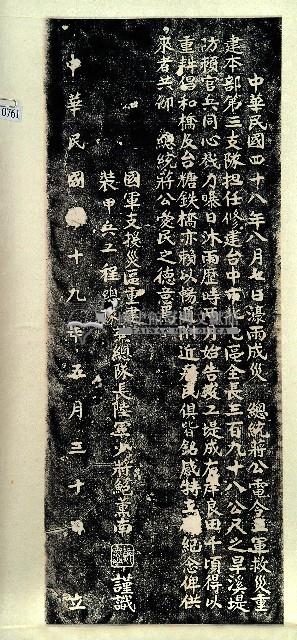 中華民國四十八年八月七日濠雨成災 總統蔣公電令 軍救災重
建本部第三支隊担任修建台中市 屯區全長三百九十八公尺之旱溪堤
防賴官兵同心戮力曝日沐雨歷時 月始告竣工堤成右岸良田千頃得以
重耕倡和橋及台糖鉄橋亦賴以暢 附近居民俱皆銘感特立 紀念俾供
來者共仰 總統蔣公愛民之德意焉
國軍支援災區重建 總隊長陸軍少將鮑薰南 謹識
裝甲兵工程總隊
中華民國 十九年五月三十日 立
0761